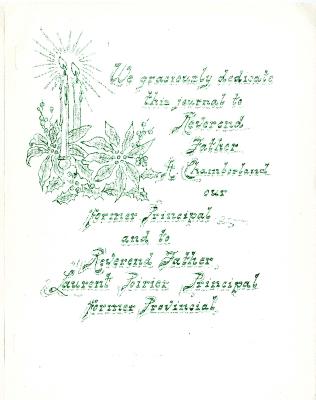 We graciously dedicate
this journal to
Reverend
Father
A. Chamberland
our
former Principal
and to
Reverend Father
Laurent Poirier Principal
former Provincial